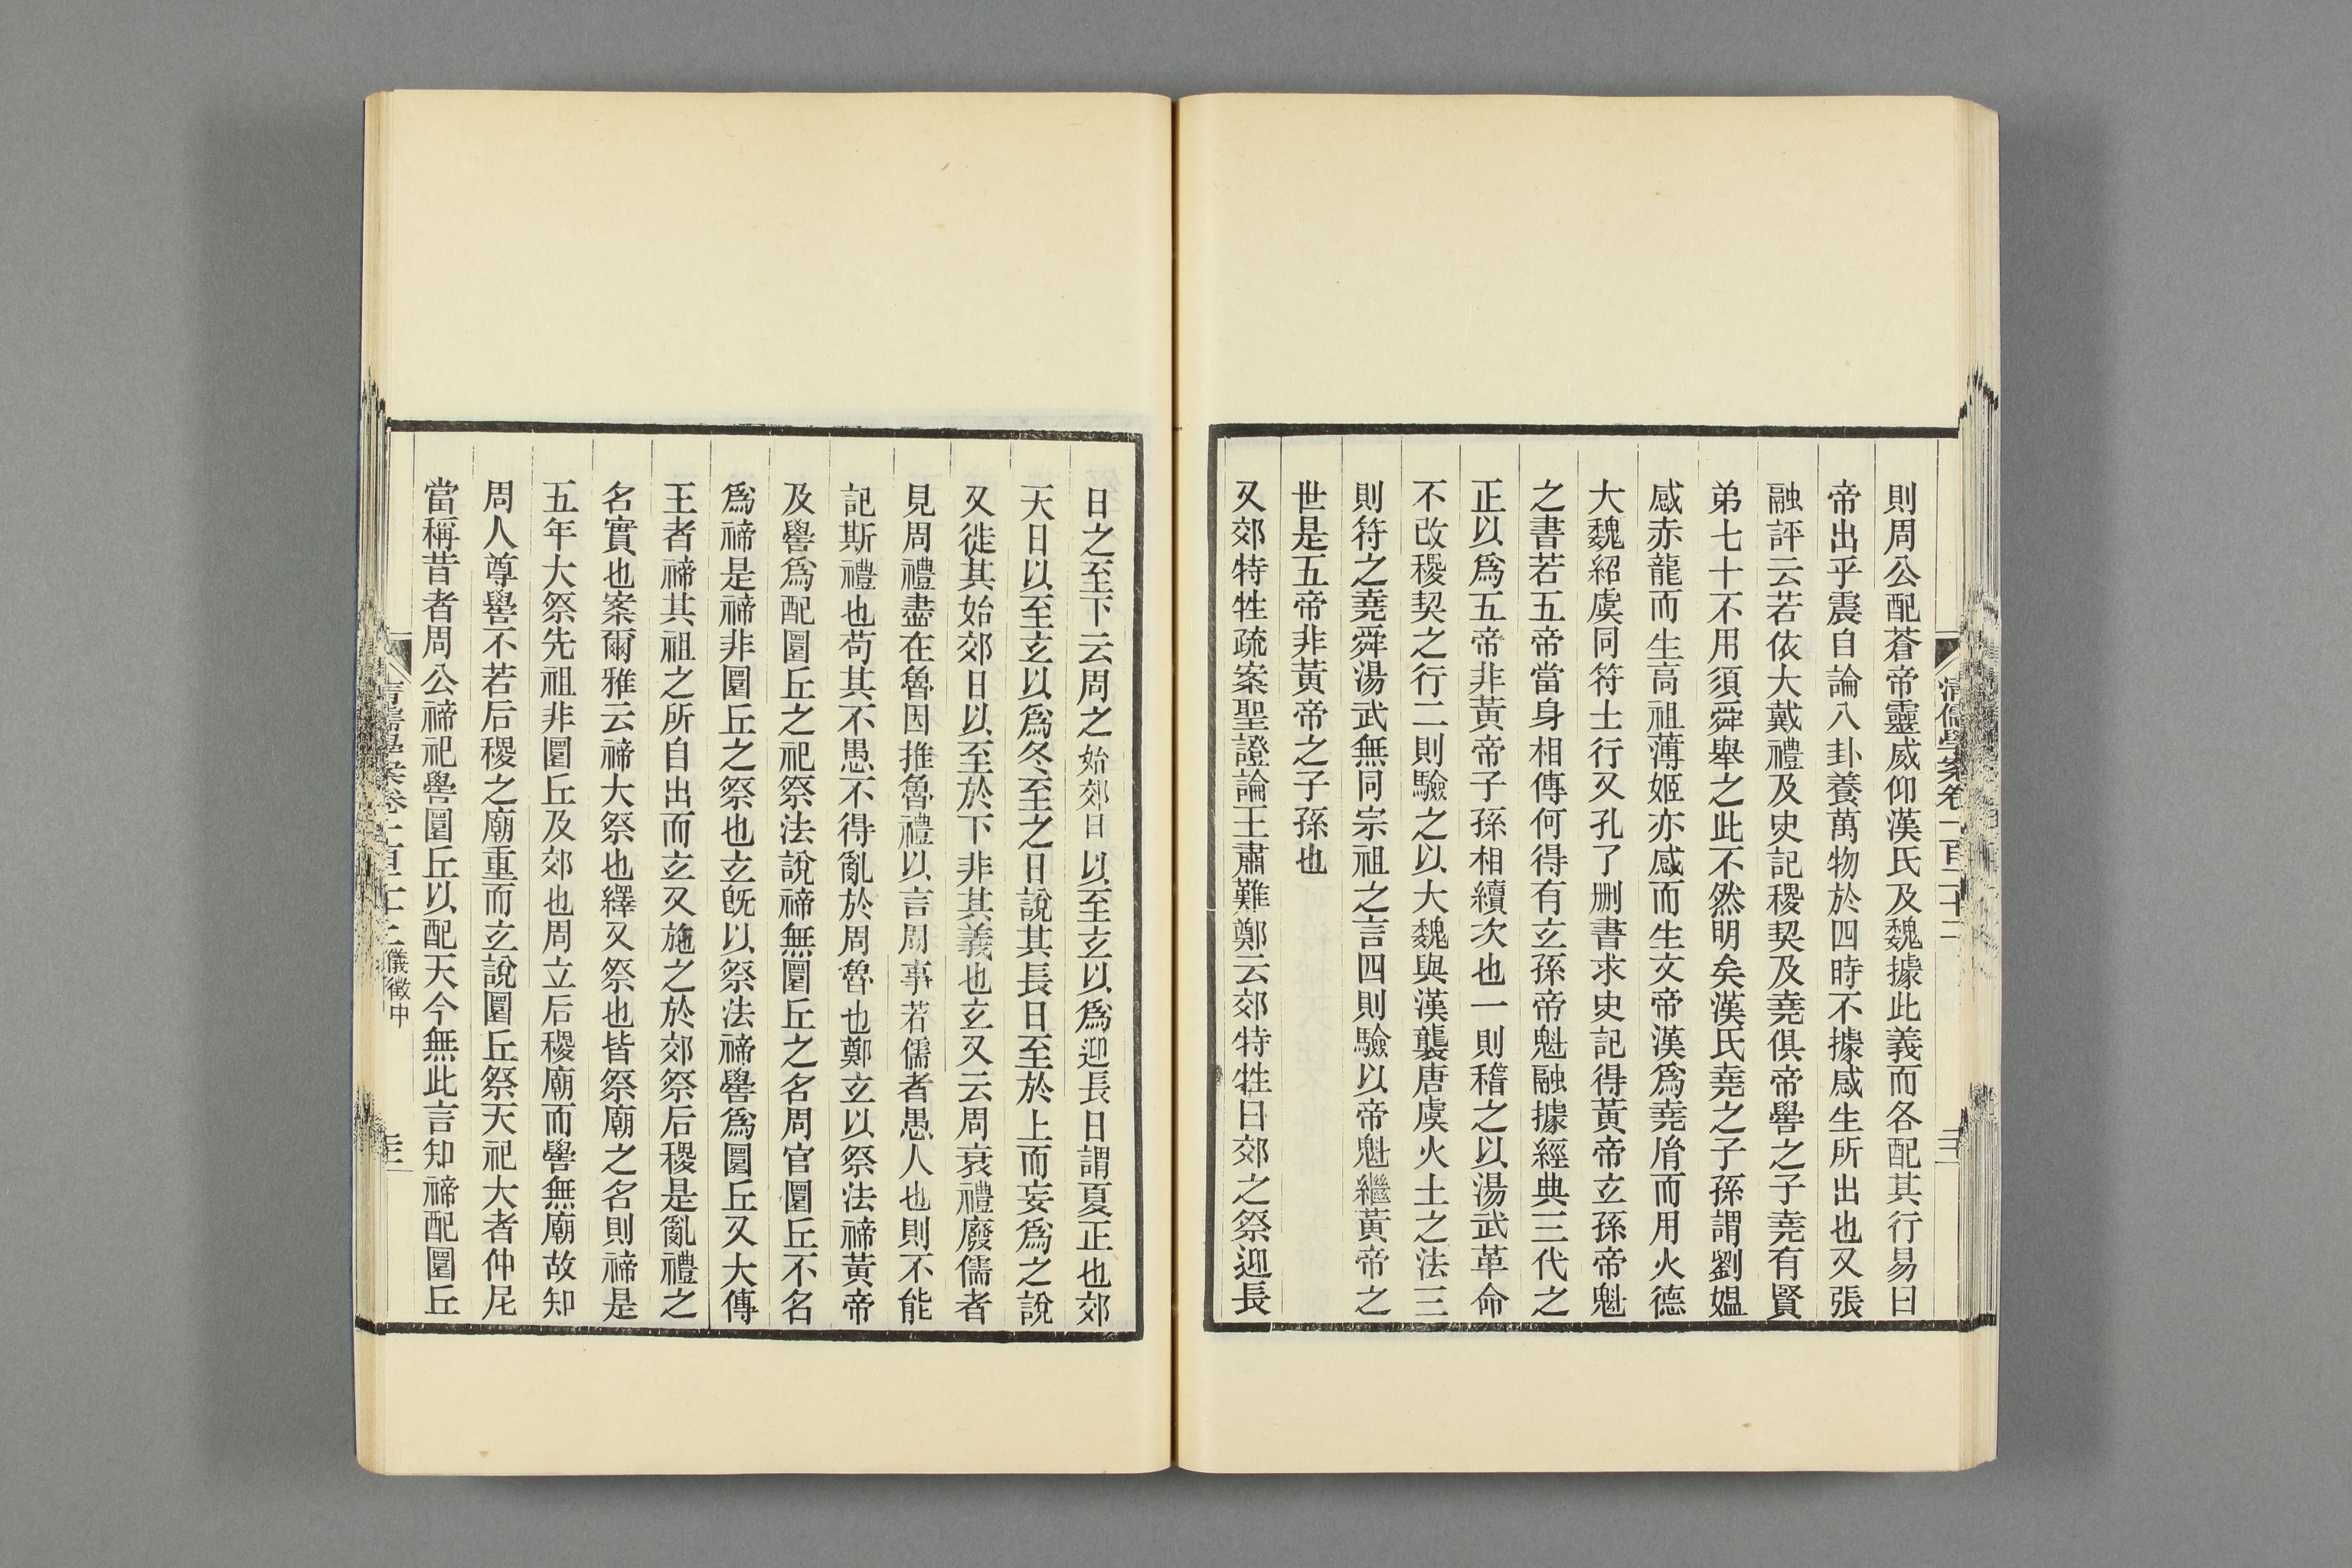 則周公配蒼帝靈威仰漢氏及魏據此義而各配其行易曰
帝出乎震自論八卦養萬物於四時不據感生所出也又張
融評云若依大戴禮及史記稷契及堯俱帝嚳之子堯有賢
弟七十不用須舜舉之此不然明矣漢氏堯之子孫謂劉媼
感赤龍而生高祖薄姬亦感而生文帝漢爲堯𦙍而用火德
大魏紹虞同符土行又孔子刪書求史記得黃帝玄孫帝魁
之書若五帝當身相傳何得有玄孫帝魁融據經典三代之
正以爲五帝非黃帝子孫相續次也一則稽之以湯武革命
不改稷契之行二則驗之以大魏與漢襲唐虞火土之法三
則符之堯舜湯武無同宗祖之言四則驗以帝魁繼黃帝之
世是五帝非黃帝之子孫也
又郊特牲疏案聖證論王肅難鄭云郊特牲曰郊之祭迎長
日之至下云周之始郊日以至玄以爲迎長日謂夏正也郊
天日以至玄以爲冬至之日說其長日至於上而妄爲之說
又徙其始郊日以至於下非其義也玄又云周衰禮廢儒者
見周禮盡在魯因推魯禮以言周事若儒者愚人也則不能
記斯禮也苟其不愚不得亂於周魯也鄭玄以祭法禘黃帝
及嚳爲配圜丘之祀祭法說禘無圜丘之名周官圜丘不名
爲禘是禘非圜丘之祭也玄旣以祭法禘嚳爲圜丘又大傳
王者禘其祖之所自出而玄又施之於郊祭后稷是亂禮之
名實也案爾雅云禘大祭也繹又祭也皆祭廟之名則禘是
五年大祭先祖非圜丘及郊也周立后稷廟而嚳無廟故知
周人尊嚳不若后稷之廟重而玄說圜丘祭天祀大者仲尼
當稱昔者周公禘祀嚳圜丘以配天今無此言知禘配圜丘
清儒學案卷一百二十二
清儒學案卷一百二十二 儀徵中